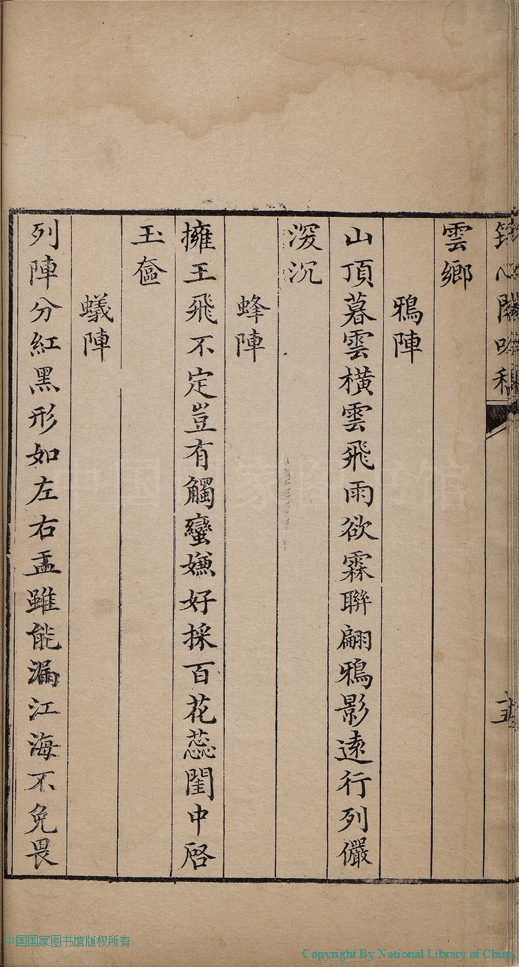 雲鄉
鴉陣
山頂暮雲橫雲飛雨欲霖聯翩鴉影遠行列儼
深沉
蜂陣
擁王飛不定豈有觸蠻嫌好採百花蕊閨中啓
玉奩
蟻陣
列陣分紅黑形如左右盂雖能漏江海不免畏
中国国家图书馆版权所有
Copyright By National Library of China